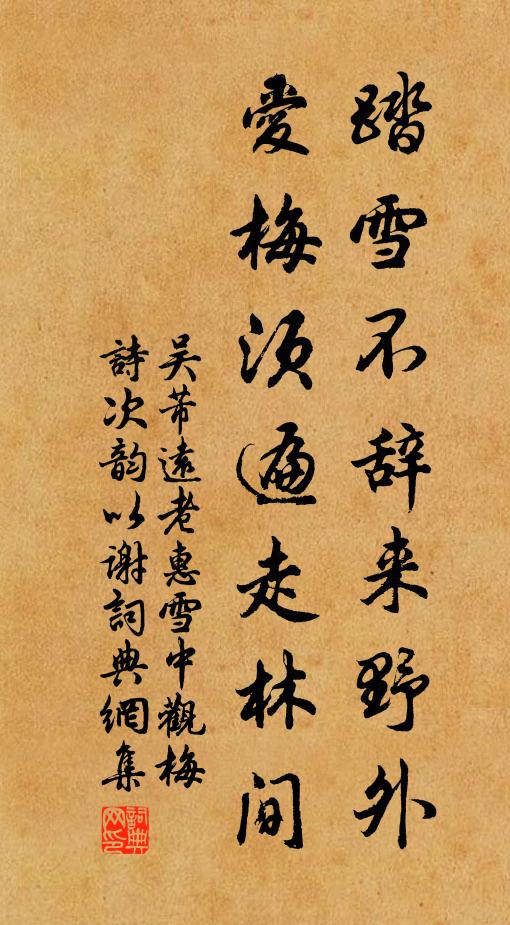 踏雪不辞来野外
愛梅须遍走林间
吴芾遠老惠雪中觀梅
詩次韵以谢詞典網集
詞典网印